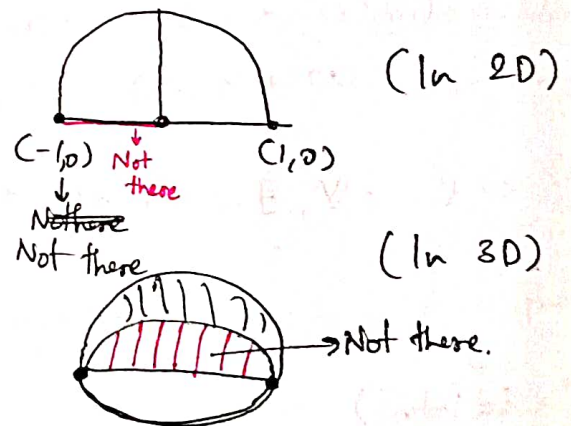 (In 2D)
(-1,0)
Not
there
(1,0)
Nothere
Not there
(In 3D)
Not there.